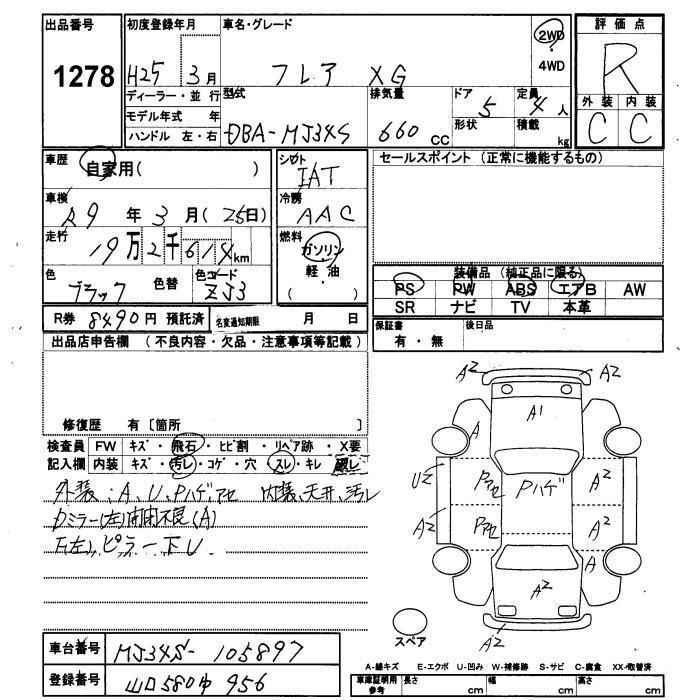 出品番号
1278
初度登録年月
H25 3月
ディーラー・並行
モデル年式 年
ハンドル 左・右
車名・グレード
フレア XG
2WD
4WD
型式
DBA-MJ34S
排気量
660 CC
ドア 5
形状
定員 4 人
積載 kg
評価点
R
外装 内装
C C
車歴
自家用( )
車検
R9 年 3 月 (25日)
走行
19万2千618km
色
ブラック
色替
色コード
ZJ3
シフト
IAT
冷房
AAC
燃料
ガソリン
・
軽油
( )
R券 8490円 預託済
名変通知期限 月 日
セールスポイント (正常に機能するもの)
装備品 (純正品に限る)
PS PW ABS エアB AW
SR ナビ TV 本革
保証書
有・無
後日品
出品店申告欄 (不良内容・欠品・注意事項等記載)
修復歴 有 〔箇所 〕
検査員 FW キズ・飛石・ヒビ割・リペア跡・X要
記入欄 内装 キズ・汚レ・コゲ・穴・スレ・キレ・破レ
外装:A、U、Pハゲ、アセ 内装、天井、汚レ
Dミラー(左)開閉不良(A)
F(左)ピラー下U
A2
A2
A1
A
U2
Pアセ
Pハゲ
A2
A2
Pアセ
A2
A
A2
A2
スペア
車台番号 MJ34S-105897
登録番号 山口580ゆ956
A-線キズ E-エクボ U-凹み W-補修跡 S-サビ C-腐食 XX-取替済
車庫証明用
参考
長さ cm
幅 cm
高さ cm